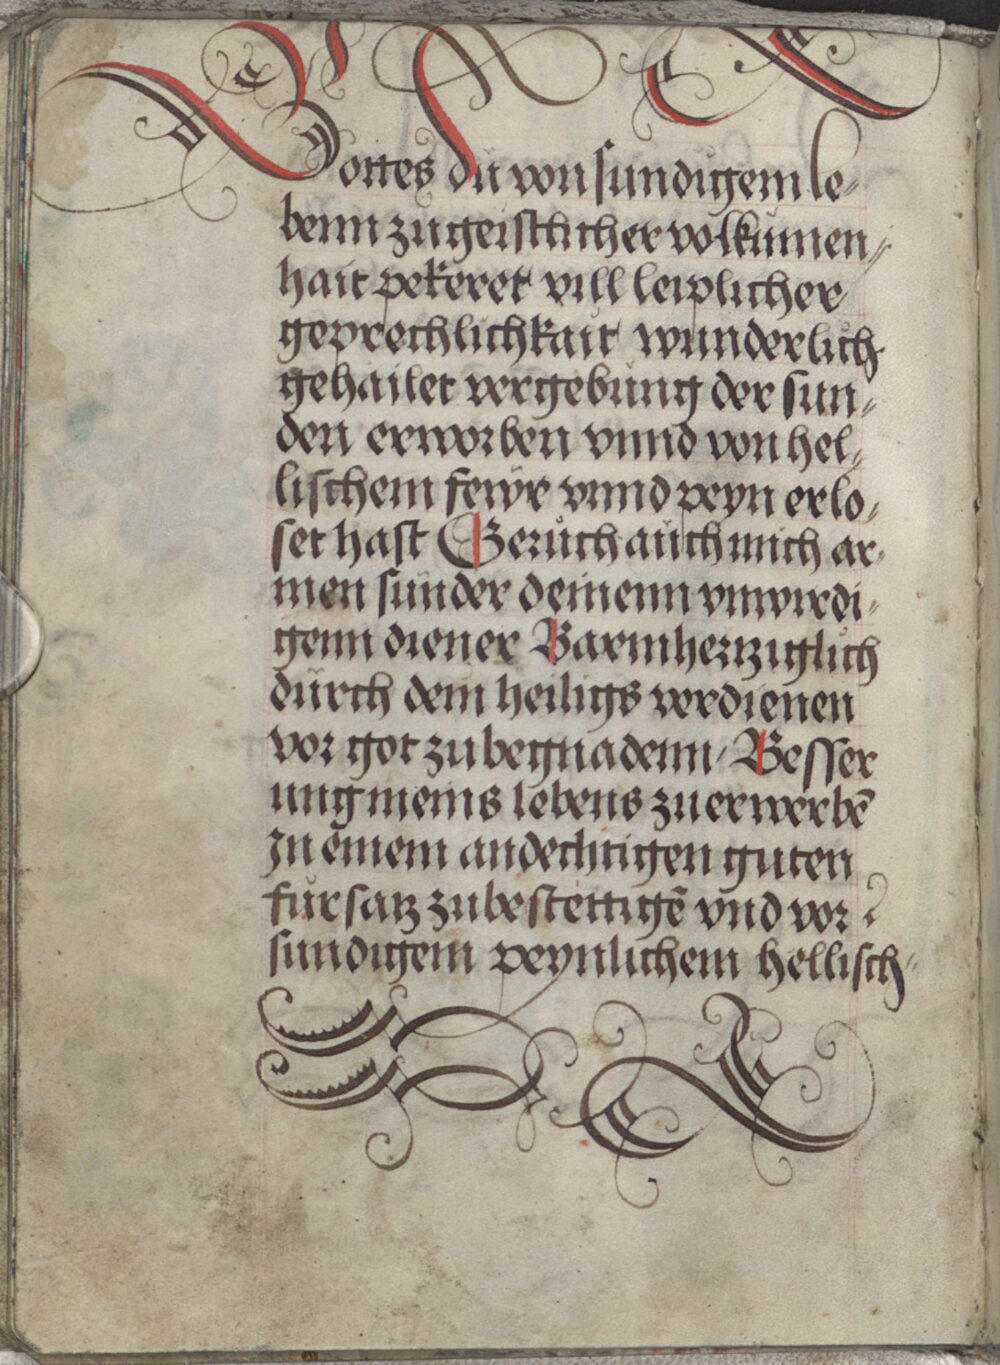 Gottes du von sundigem le-
benn zu geistlicher volkumen-
hait pekeret vill leiplicher
geprechlichkait wunderlich
gehailet vergebung der sun-
den erworben vnnd von hel-
lischem fewr vnnd peyn erlo-
set hast Geruch auch mich ar-
men sunder deinenn vnwirdi-
genn diener Barmherzziglich
durch dein heiligs verdienen
vor got zu begnadenn / Besser
ung meins lebens zu erwerbē
In einem andechtigen guten
fursatz zu bestettigē vnd vor
sundigem peynlichem hellisch-